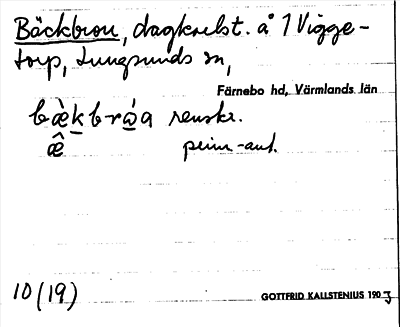 Bäckbron, dagkarlst. å 1 Vigge-
torp, Lungsunds sn,
Färnebo hd, Värmlands län
bæ̀kbrὼa renskr.
æ̂ prim-ant.
10 (19)
GOTTFRID KALLSTENIUS 190 3